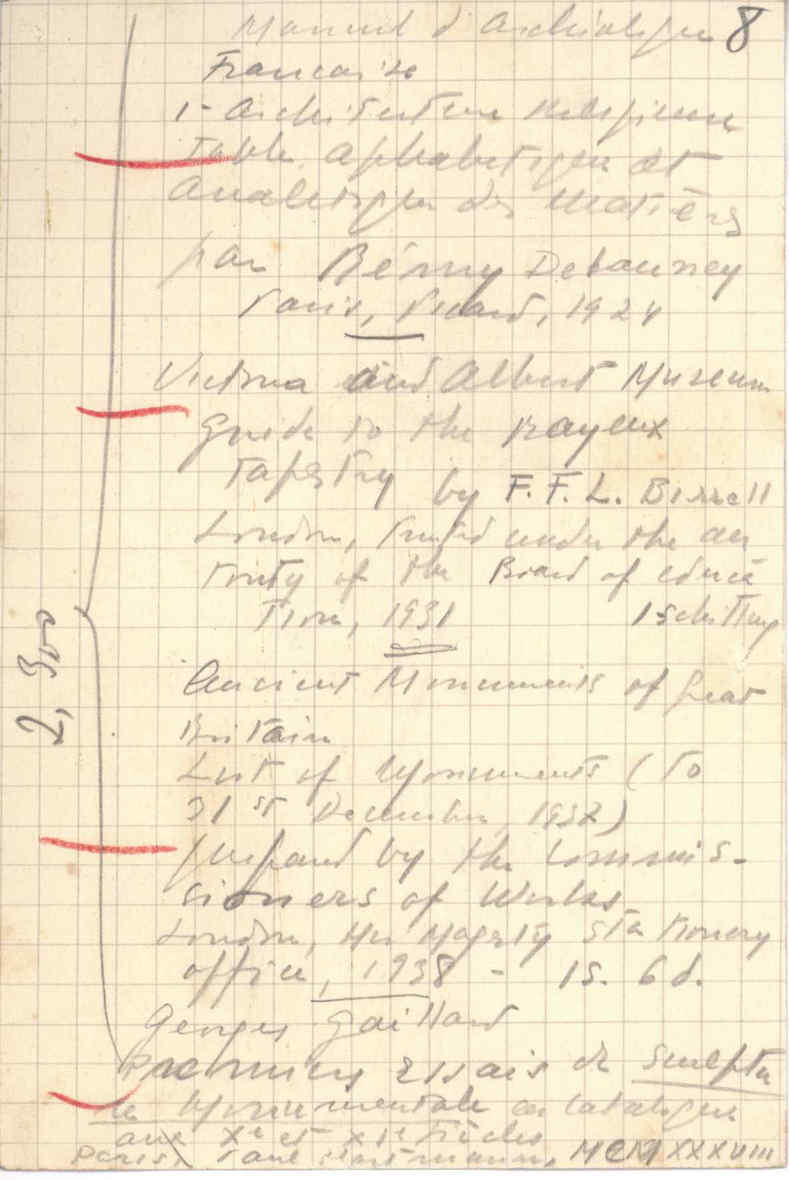 8
Manuel d'Archéologie
Francaise
1- Architecture Religieuse
Table. Alphabetique et
Analitique des Matiérs
par Bérny Delauney
Paris, Picard, 1924
Victoria and Albert Museum
Guide to the Bayeux
Tapestry by F.F.L. Birrell
London, Printed under the au
tority of the Board of educa
tion, 1931 1 schilling
Ancient Monuments of Great
Britain
List of Monuments (to
31st December, 1937)
prepared by the Commis-
sioners of Works
London, His Magesty Stationery
office, 1938 - 1s. 6d.
Georges Gaillard
Premiers Essais de Sculptu
re Monumentale en Catalogne
aux Xe et XIe Siècles
Paris, Paul Hartmann, MCMXXXVIII
2,300